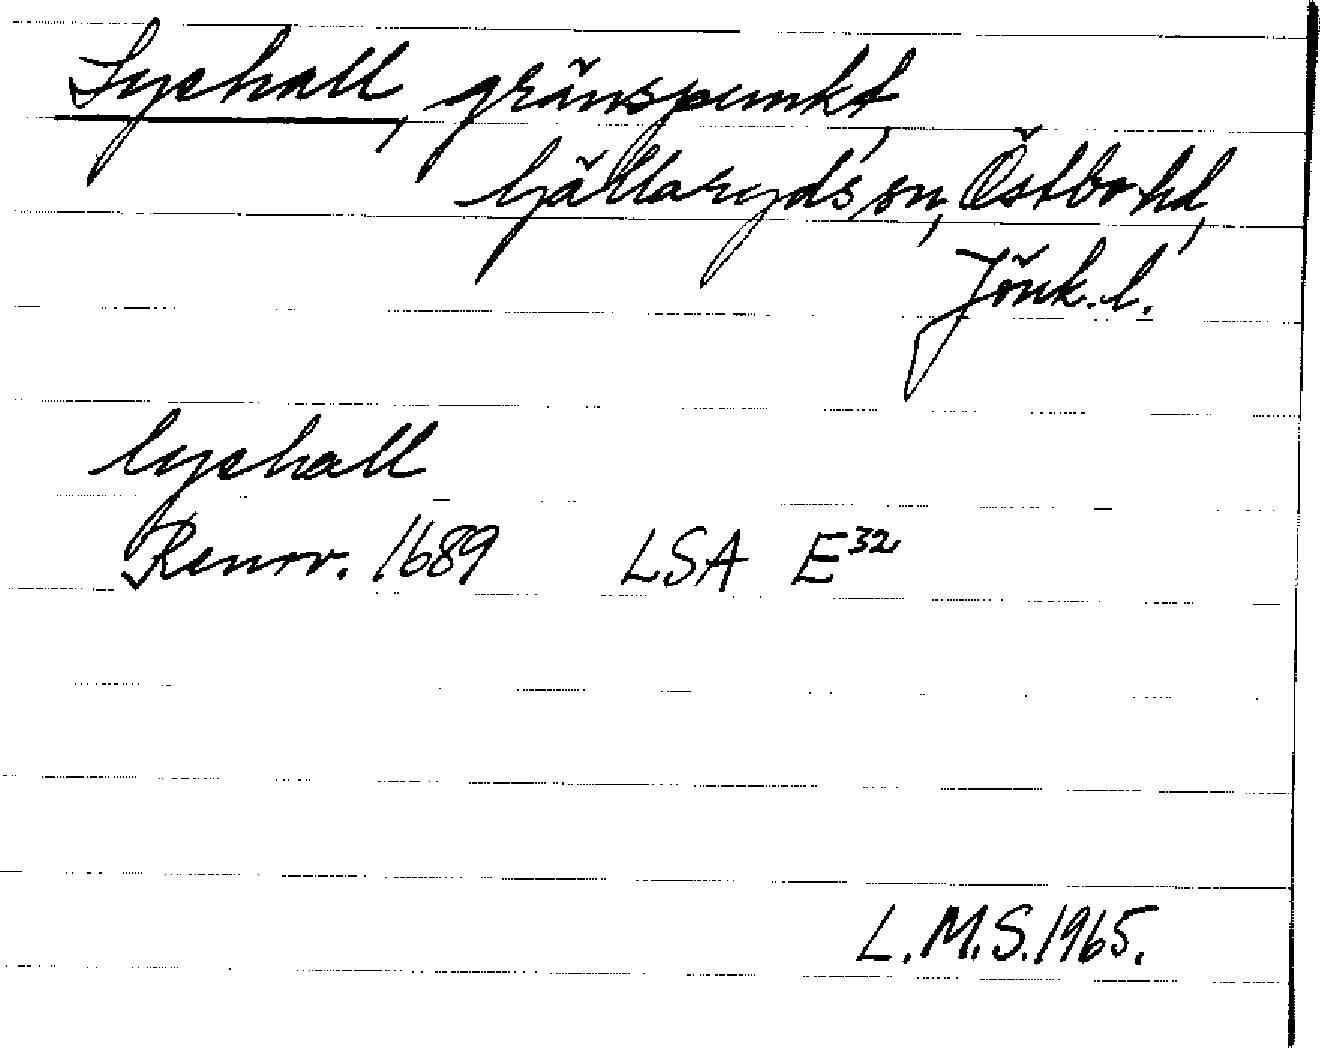 Lyehall, gränspunkt,
hjällaryds sn, Östbo hd,
Jönk. l.
lyehall
Renov. 1689 LSA E32
L.M.S. 1965.